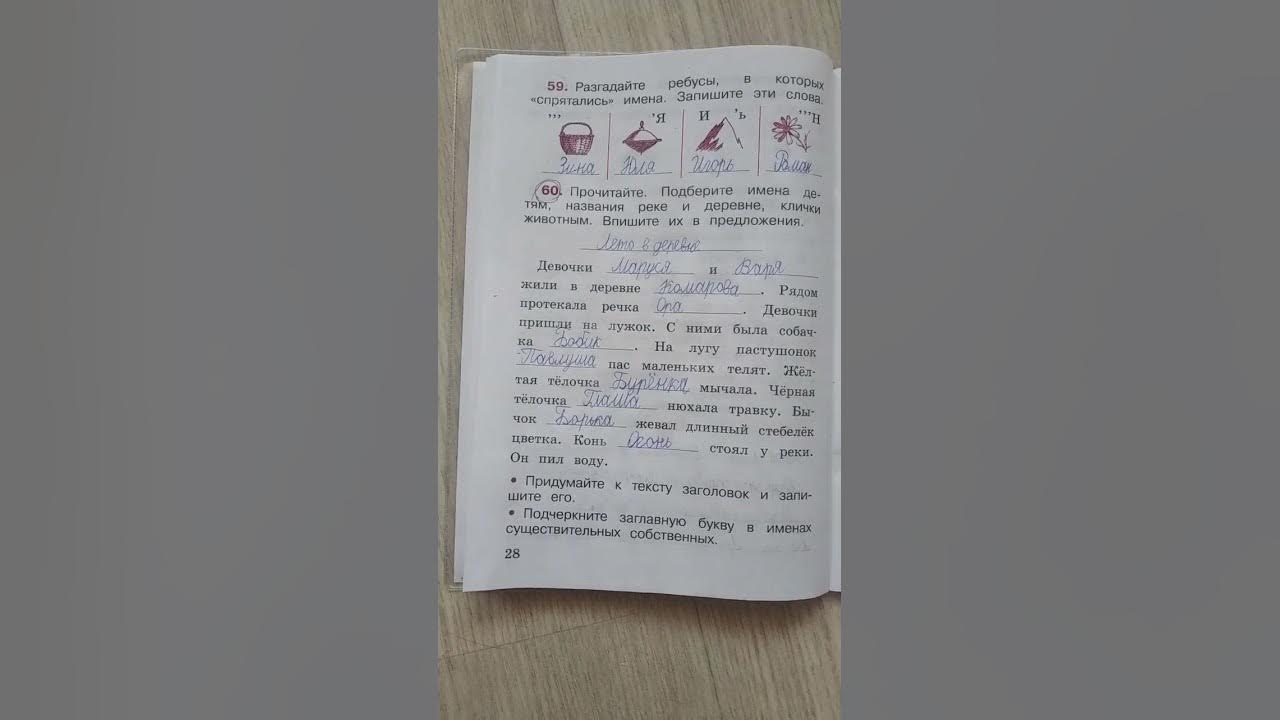 59. Разгадайте ребусы, в которых
«спрятались» имена. Запишите эти слова.
''' 'Я И 'ь '''Н
Зина Юля Игорь Роман
60. Прочитайте. Подберите имена де-
тям, названия реке и деревне, клички
животным. Впишите их в предложения.
Лето в деревне
Девочки Маруся и Варя
жили в деревне Комарова. Рядом
протекала речка Ора. Девочки
пришли на лужок. С ними была собач-
ка Бобик. На лугу пастушонок
Павлуша пас маленьких телят. Жёл-
тая тёлочка Бурёнка мычала. Чёрная
тёлочка нюхала травку. Бы-
чок Борька жевал длинный стебелёк
цветка. Конь Огонь стоял у реки.
Он пил воду.
• Придумайте к тексту заголовок и запи-
шите его.
• Подчеркните заглавную букву в именах
существительных собственных.
28